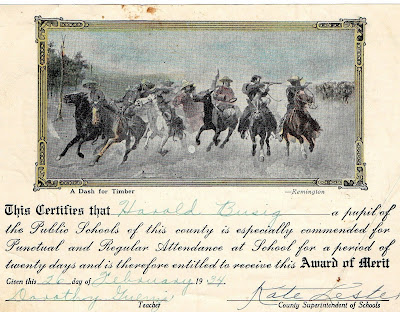 A Dash for Timber —Remington
This Certifies that Harold Busig a pupil of
the Public Schools of this county is especially commended for
Punctual and Regular Attendance at School for a period of
twenty days and is therefore entitled to receive this Award of Merit
Given this 26 day of February 1934.
Dorothy Kate Lester
Teacher County Superintendent of Schools